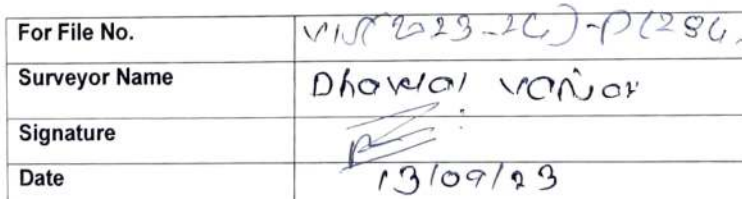 For File No. VIS(2023-24)-P(284,
Surveyor Name Dhawal Vanjar
Signature
Date 13/09/23